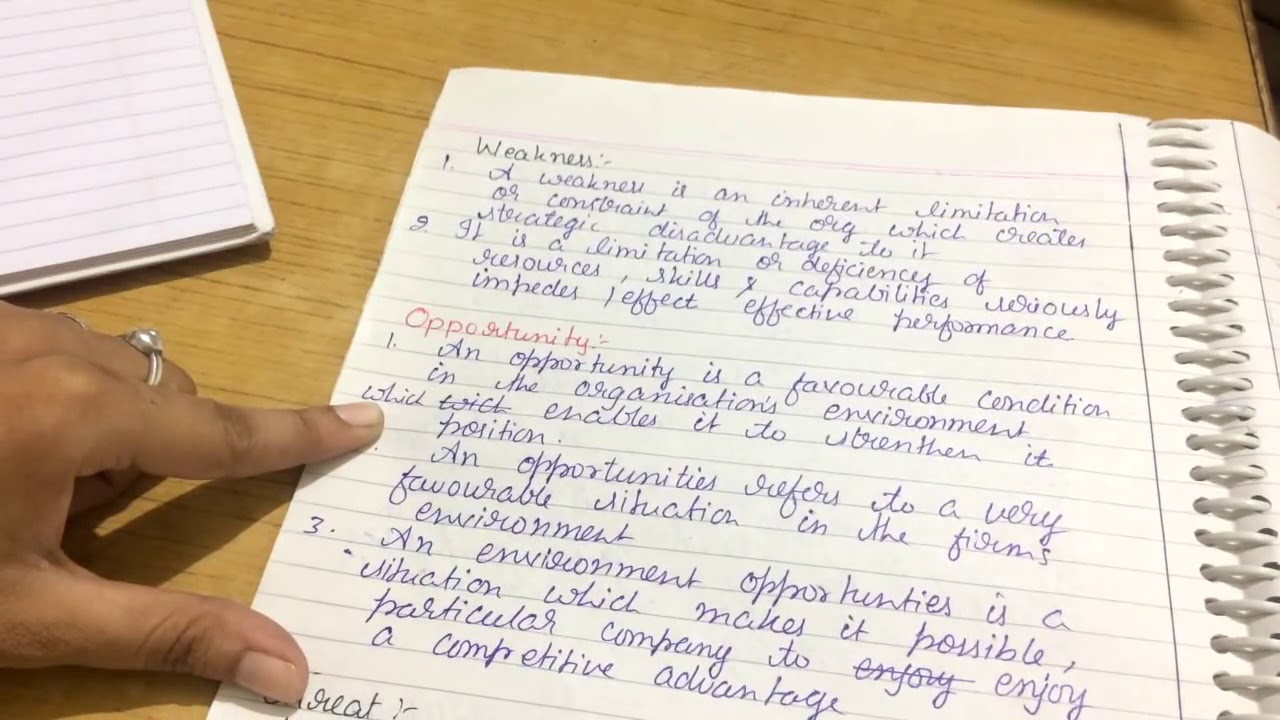 Weakness:-
1. A weakness is an inherent limitation
or constraint of the org which creates
strategic disadvantage to it
2. It is a limitation or deficiences of
resources, skills & capabilities seriously
impedes / effect effective performance
Opportunity:-
1. An opportunity is a favourable condition
in the organisation's environment
which wich enables it to strenthen it
position.
An opportunities refers to a very
favourable situation in the firms
environment
3. An environment opportunties is a
situation which makes it possible,
particular company to enjoy enjoy
a competitive advantage
Threat :-